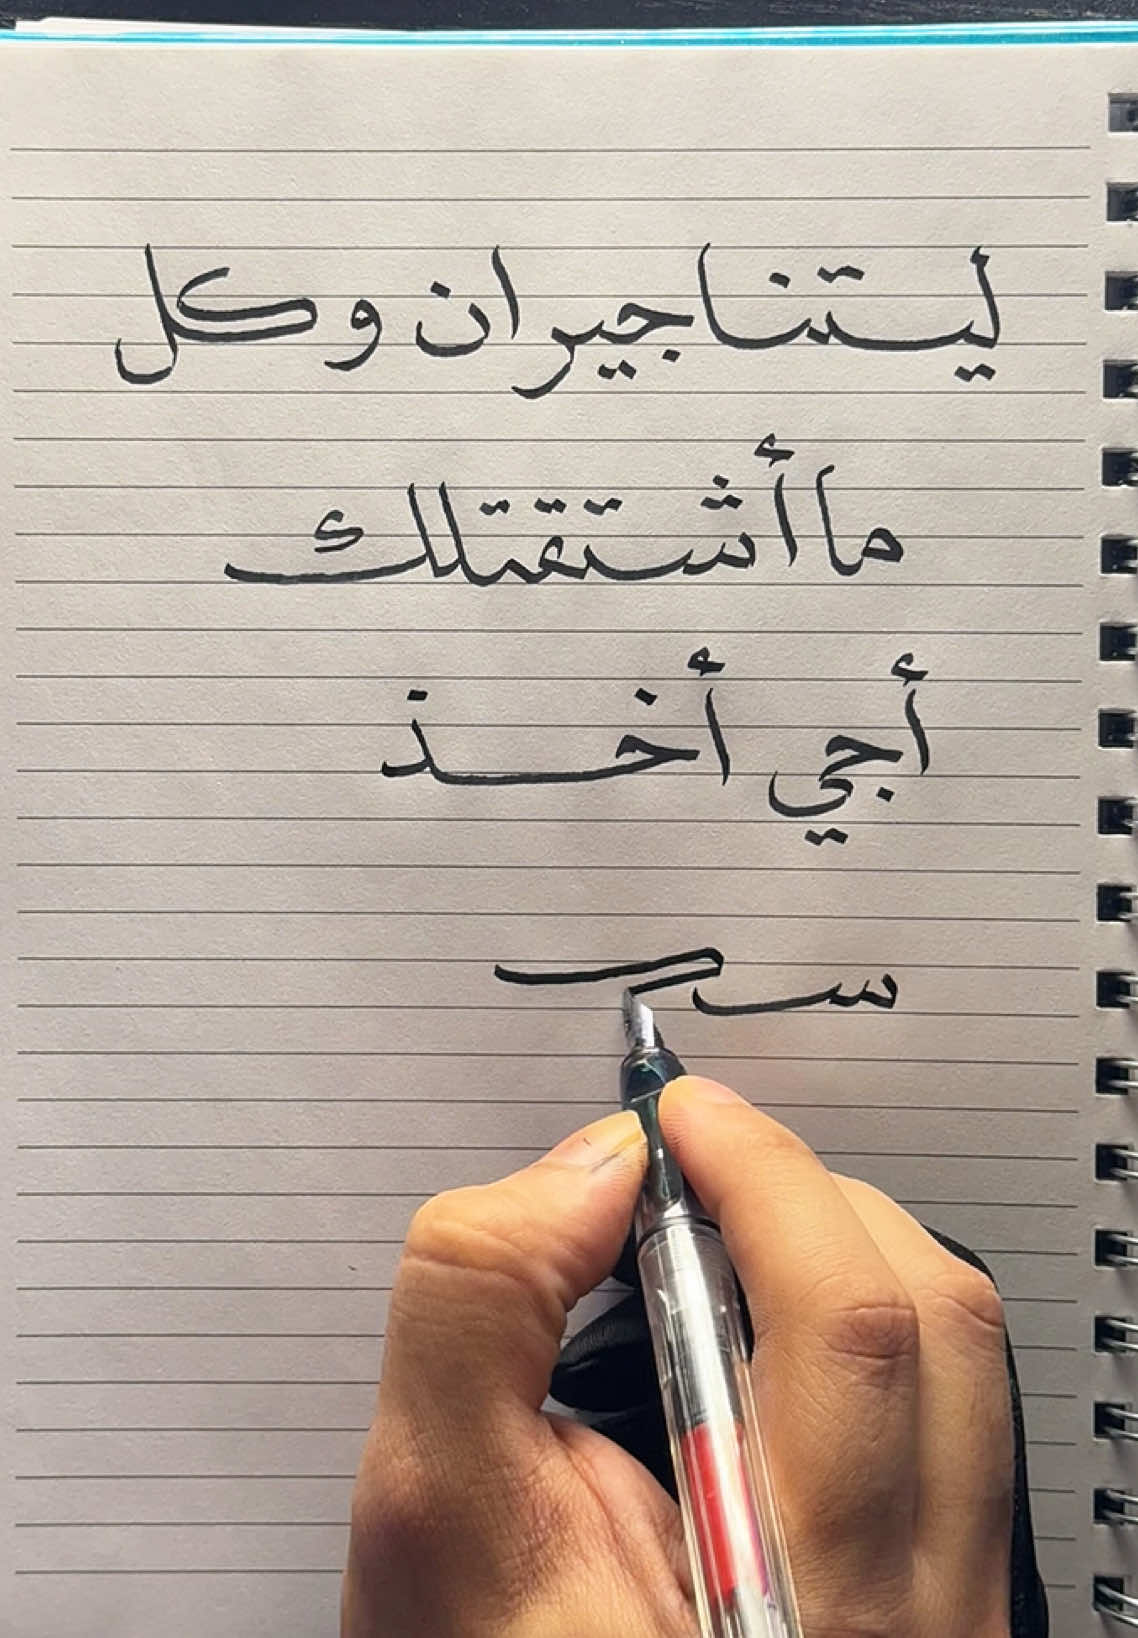 ليتنا جيران وكل
ما أشتقتلك
أجي أخذ
سكـ